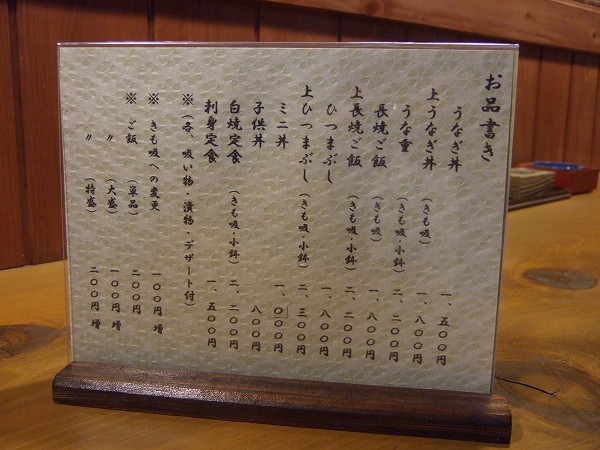 お品書き
うなぎ丼 一、五〇〇円
上うなぎ丼 (きも吸) 一、八〇〇円
うな重 (きも吸・小鉢) 二、二〇〇円
長焼ご飯 (きも吸) 一、八〇〇円
上長焼ご飯 (きも吸・小鉢) 二、二〇〇円
ひつまぶし 一、八〇〇円
上ひつまぶし (きも吸・小鉢) 二、三〇〇円
ミニ丼 一、〇〇〇円
子供丼 八〇〇円
白焼定食 (きも吸・小鉢) 二、二〇〇円
刺身定食 一、五〇〇円
※(各、吸い物・漬物・デザート付)
※きも吸への変更 一〇〇円 増
※ご飯 (単品) 二〇〇円
〃 (大盛) 一〇〇円 増
〃 (特盛) 二〇〇円 増